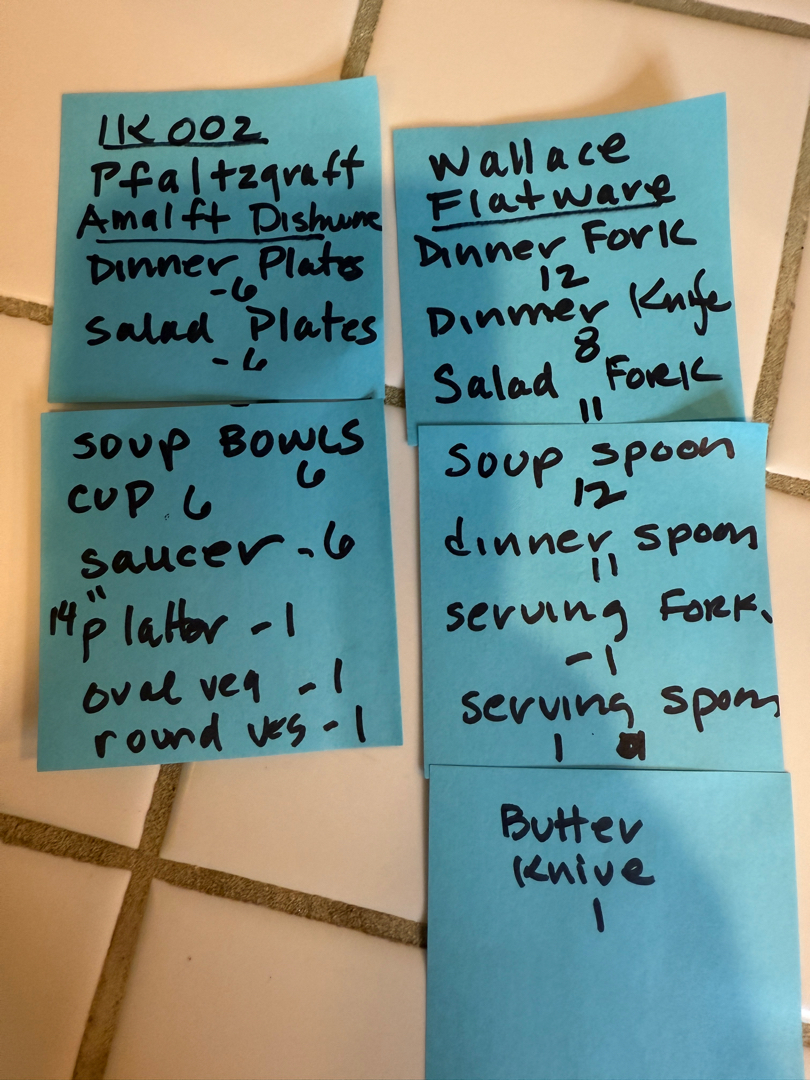 1K002
Pfaltzgraff
Amalft Dishware
Dinner Plates
-6
Salad Plates
-6
SOUP BOWLS
6
CUP 6
saucer - 6
14" platter - 1
oval veg - 1
round veg - 1
Wallace
Flatware
Dinner Fork
12
Dinner Knife
8
Salad Fork
11
Soup spoon
12
dinner spoon
11
serving Fork
-1
serving spoon
1
Butter
Knive
1